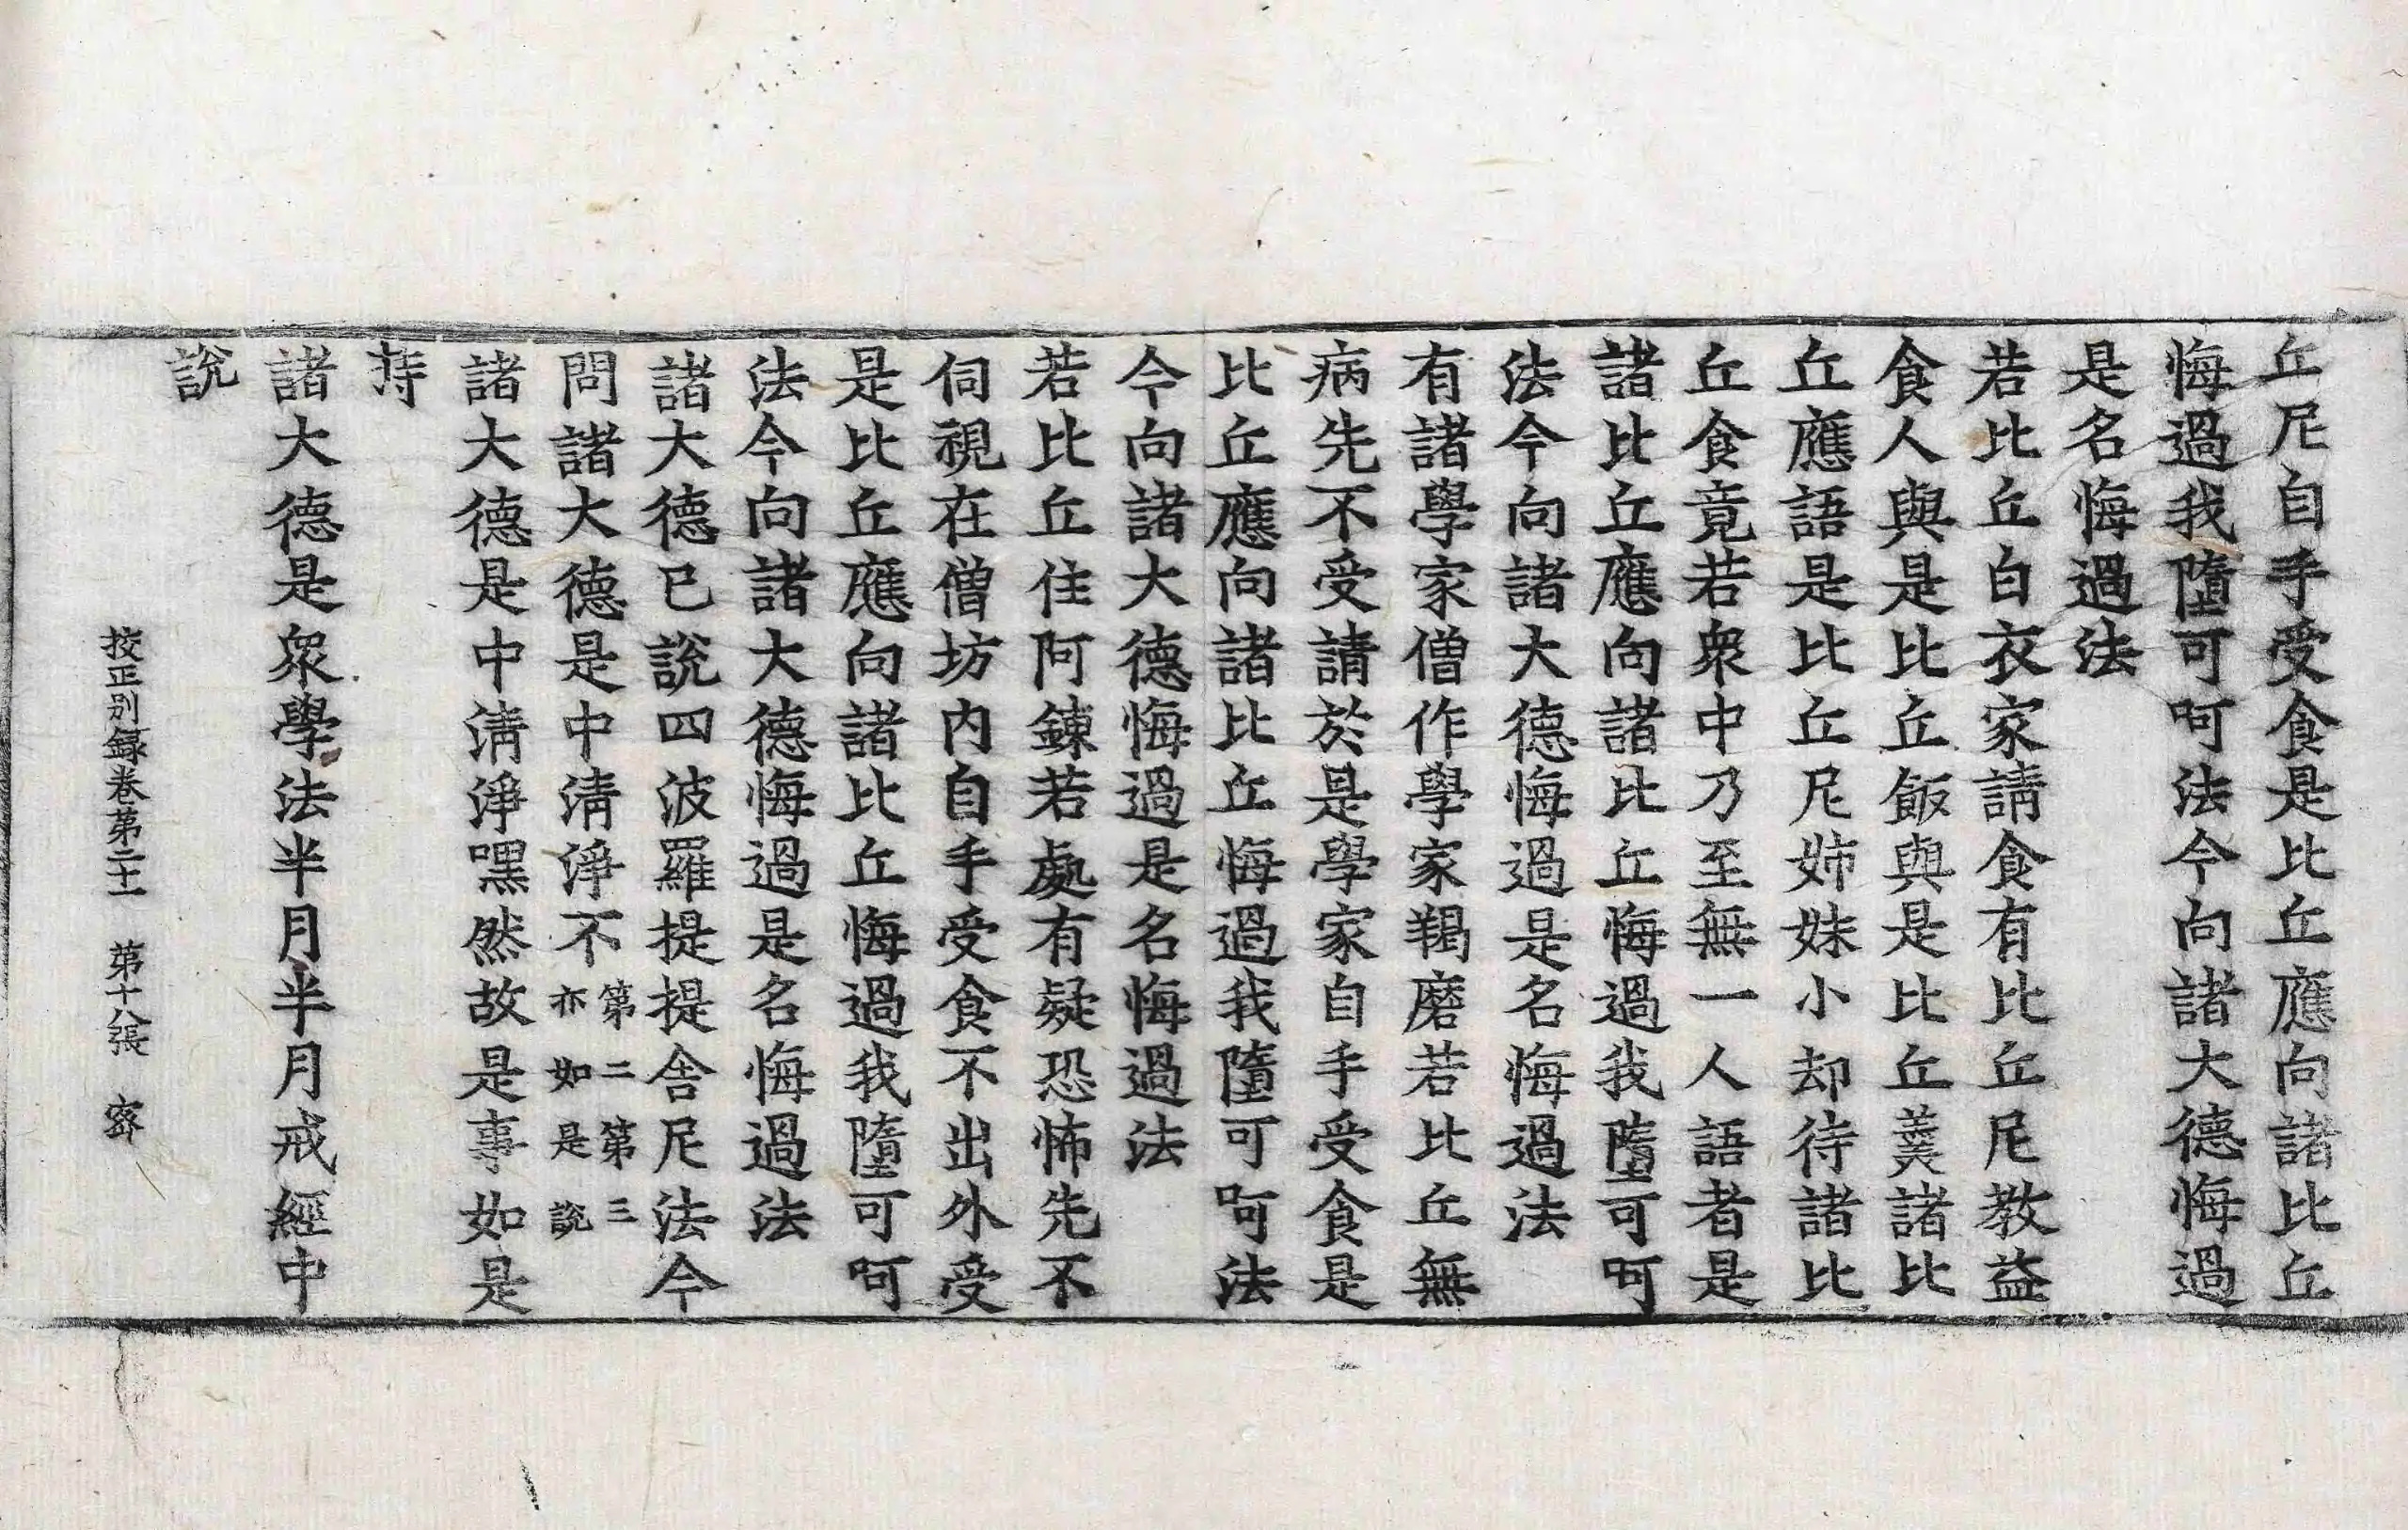 丘尼自手受食是比丘應向諸比丘
悔過我墮可呵法今向諸大德悔過
是名悔過法
若比丘白衣家請食有比丘尼教益
食人與是比丘飯與是比丘羹諸比
丘應語是比丘尼姉妹小却待諸比
丘食竟若衆中乃至無一人語者是
諸比丘應向諸比丘悔過我墮可呵
法今向諸大德悔過是名悔過法
有諸學家僧作學家羯磨若比丘無
病先不受請於是學家自手受食是
比丘應向諸比丘悔過我墮可呵法
今向諸大德悔過是名悔過法
若比丘住阿鍊若處有疑恐怖先不
伺視在僧坊内自手受食不出外受
是比丘應向諸比丘悔過我墮可呵
法今向諸大德悔過是名悔過法
諸大德已說四波羅提提舍尼法今
問諸大德是中淸淨不第二第三亦如是說
諸大德是中淸淨嘿然故是事如是
持
諸大德是衆學法半月半月戒經中
說
挍正別録卷第二十一 第十八張 密